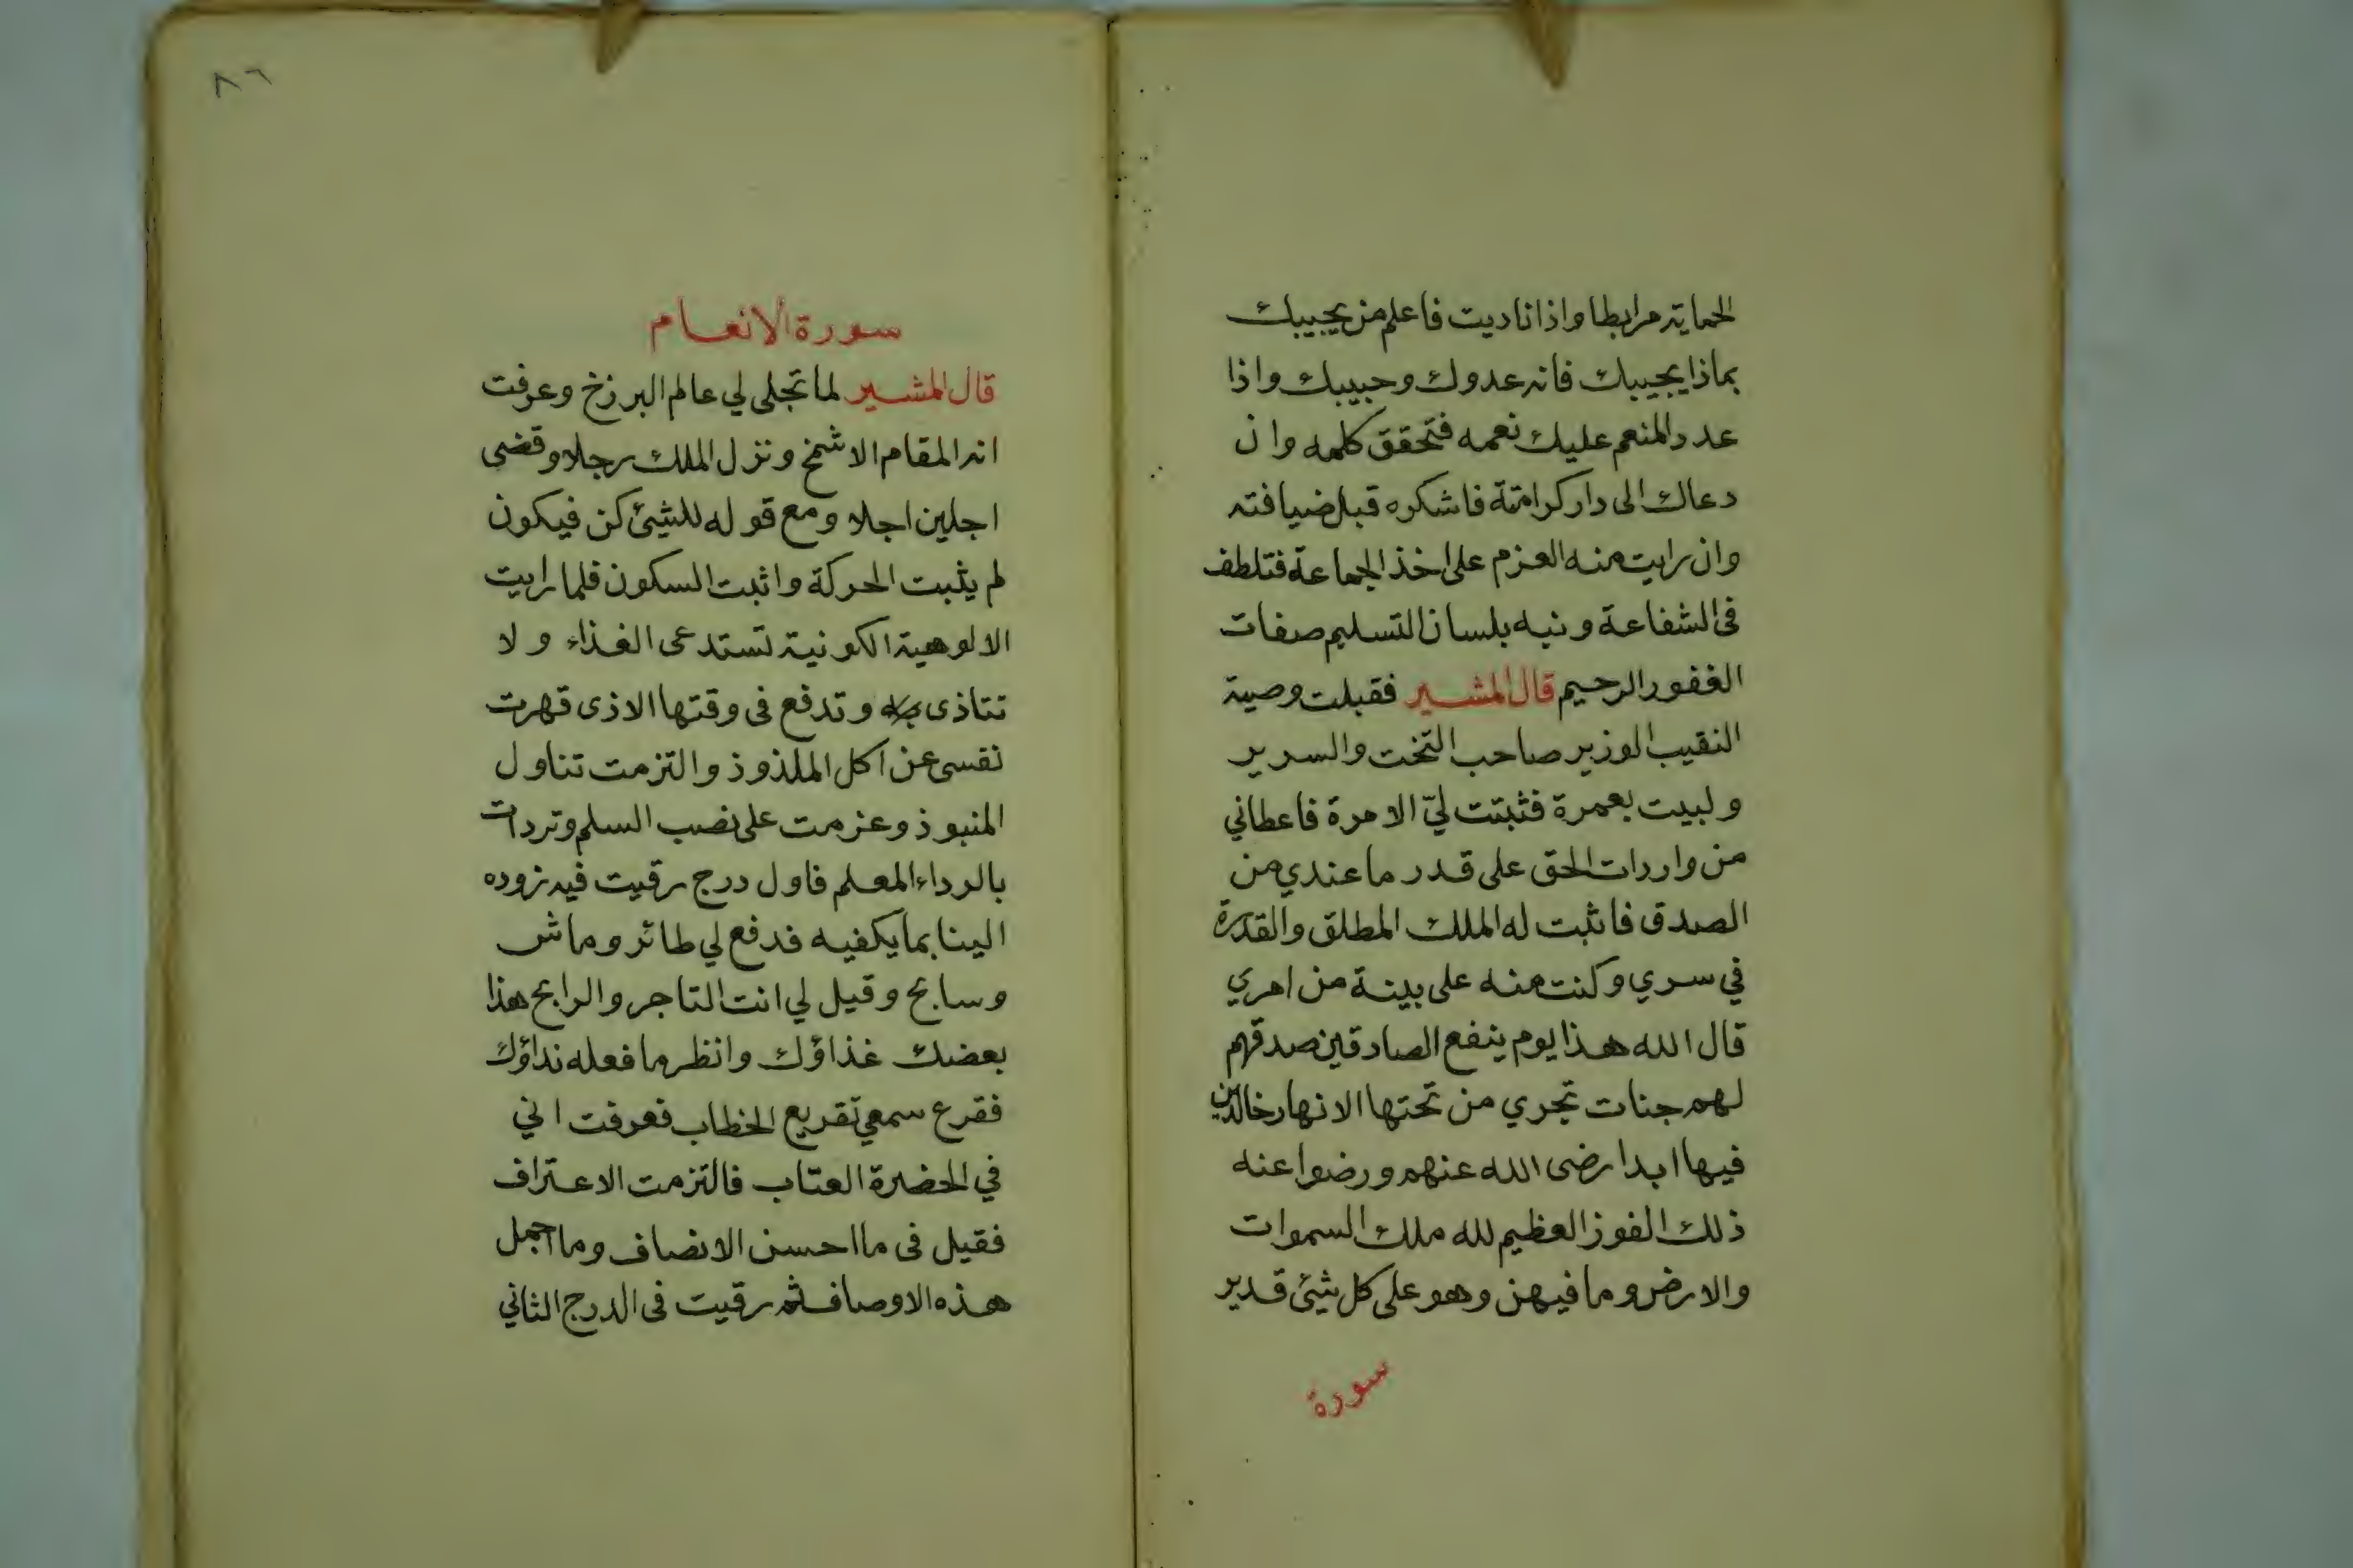 الحماية مرابطا واذا ناديت فاعلم من يجيبك
بماذا يجيبك فانه عدوك وحبيبك واذا
عدد المنعم عليك نعمه فتحقق كلمه وان
دعاك الى دار كرامتة فاشكره قبل ضيافته
وان رايت منه العزم على اخذ الجماعة فتلطف
فى الشفاعة ونبه بلسان التسليم صفات
الغفور الرحيم قال المشير فقبلت وصية
النقيب الوزير صاحب التخت والسرير
ولبيت بعمرة فثبتت ليّ الامرة فاعطاني
من واردات الحق على قدر ما عندي من
الصدق فاثبت له الملك المطلق والقدرة
في سري وكنت منه على بينة من امري
قال الله هذا يوم ينفع الصادقين صدقهم
لهم جنات تجري من تحتها الانهار خالدين
فيها ابدا رضى الله عنهم ورضوا عنه
ذلك الفوز العظيم لله ملك السموات
والارض وما فيهن وهو على كل شئ قدير
سورة
٨٦
سورة الانعام
قال المشير لما تجلى لي عالم البرزخ وعرفت
انه المقام الاشمخ ونزل الملك رجلا وقضى
اجلين اجلا ومع قوله للشئ كن فيكون
لم يثبت الحركة واثبت السكون فلما رايت
الالوهية الكونية تستدعى الغذاء ولا
تتاذى به وتدفع فى وقتها الاذى قهرت
نفسى عن اكل الملذوذ والتزمت تناول
المنبوذ وعزمت على نصب السلم وتردات
بالرداء المعلم فاول درج رقيت فيه زوده
الينا بما يكفيه فدفع لي طائر وماش
وسابح وقيل لي انت التاجر والرابح هذا
بعضك غذاؤك وانظر ما فعله نداؤك
فقرع سمعي تقريع الخطاب فعرفت اني
في الحضرة العتاب فالتزمت الاعتراف
فقيل فى ما احسن الانصاف وما اجمل
هذه الاوصاف ثم رقيت فى الدرج الثاني